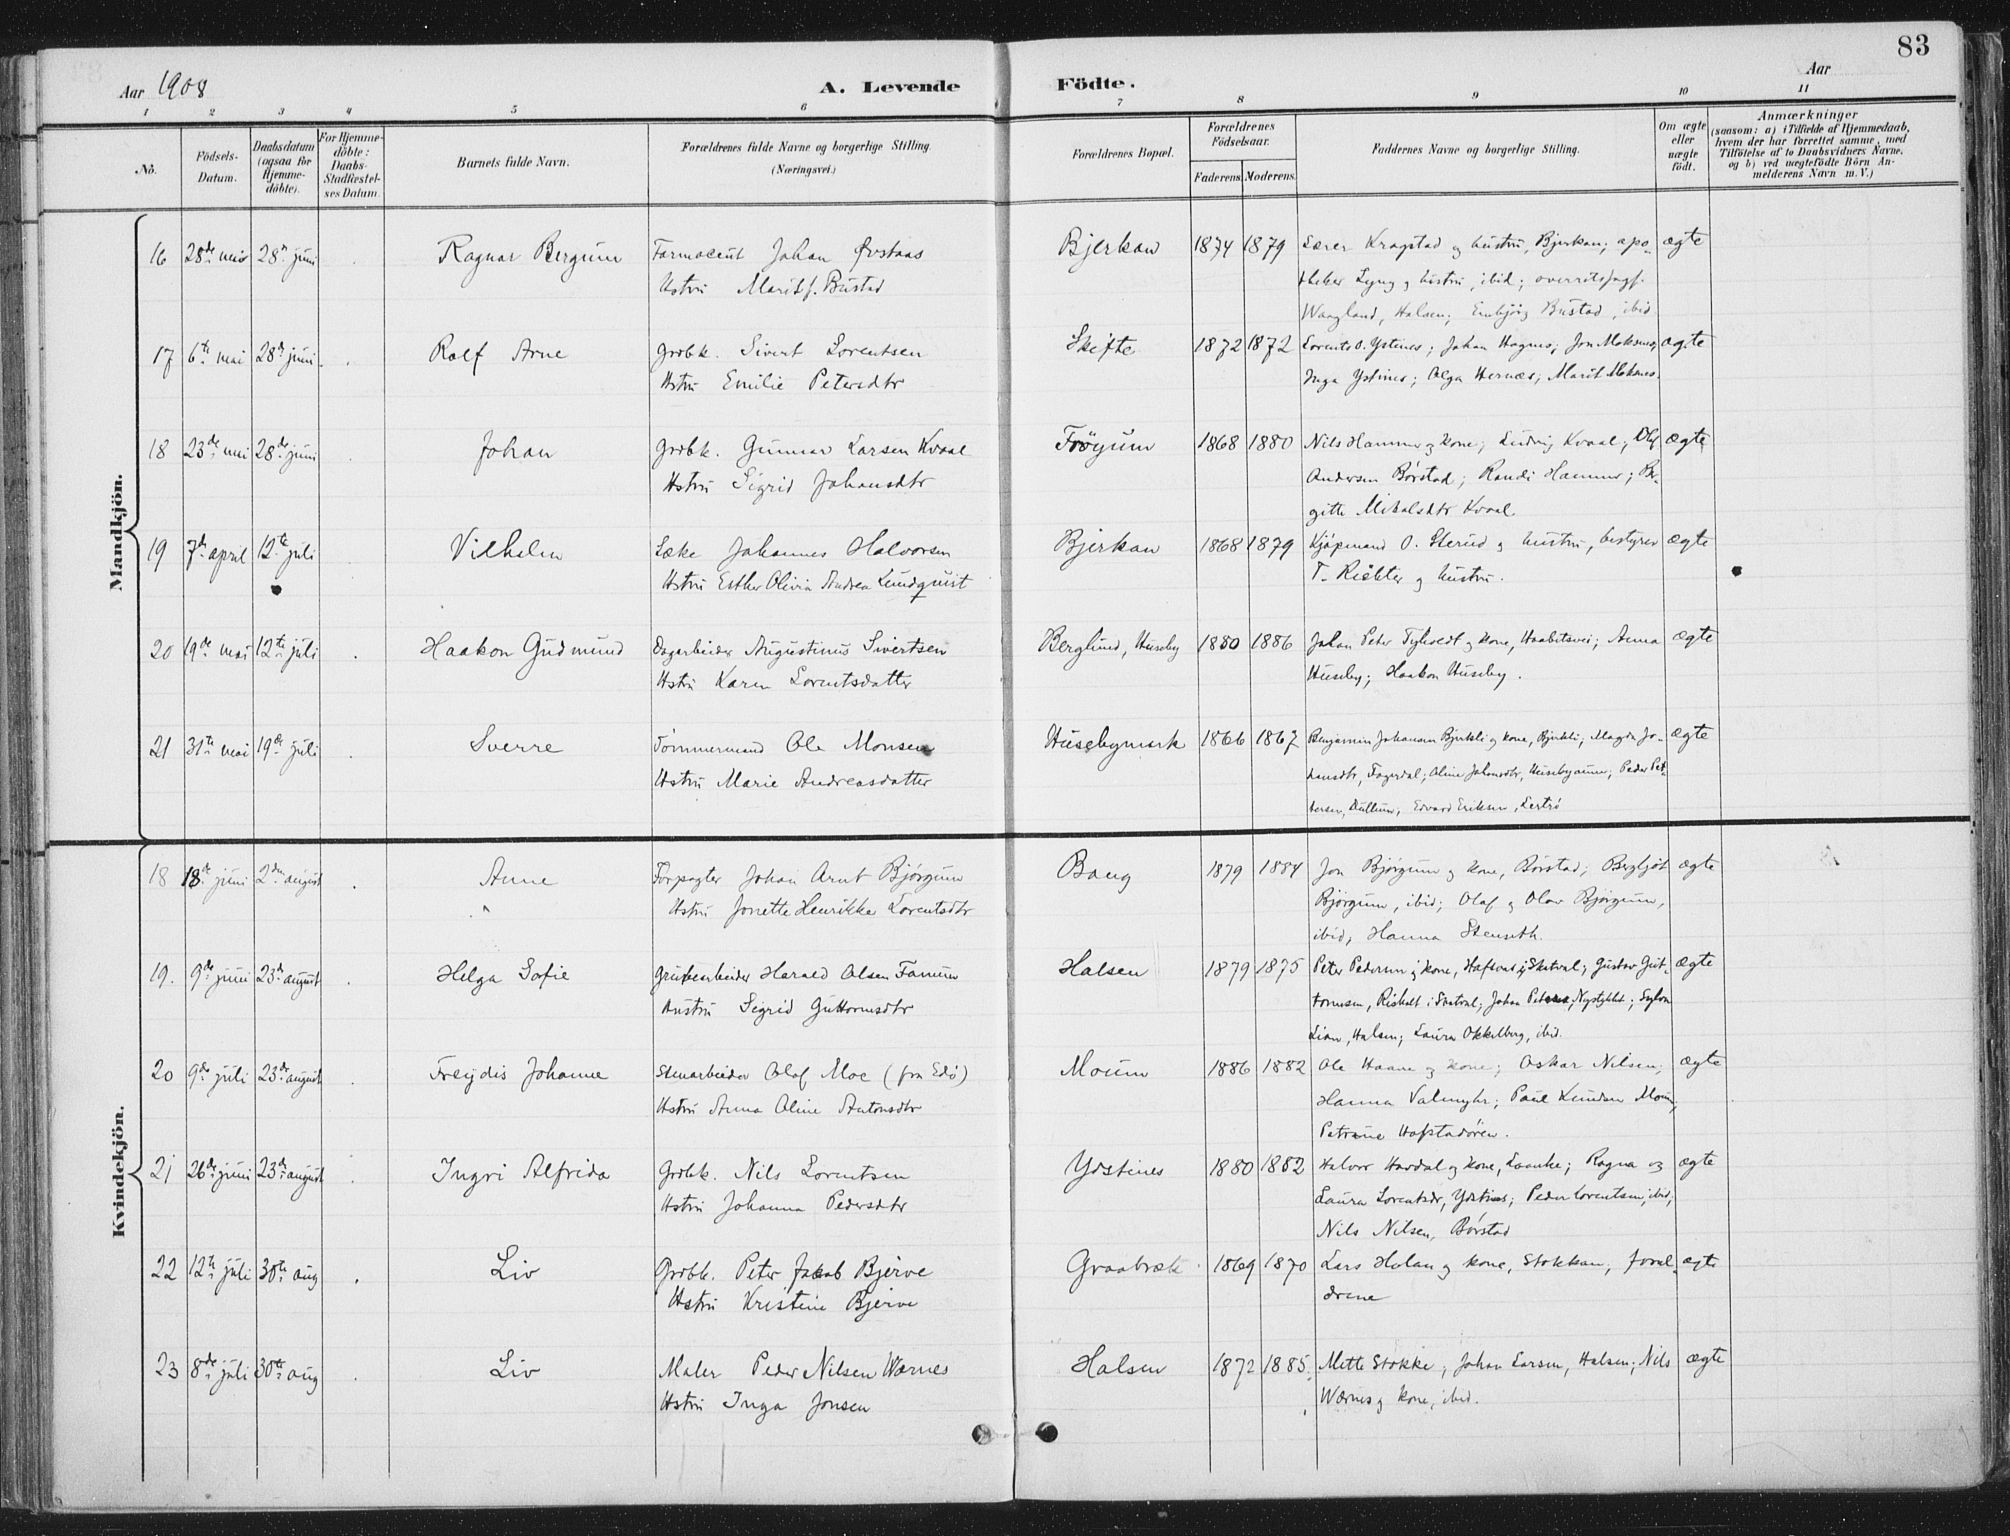 83
Aar 1908
A. Levende Födte.
Aar
1 2 3 4 5 6 7 8 9 10 11
No.
Födsels-Datum.
Daabsdatum (ogsaa for Hjemme-döbte).
For Hjemme-döbte: Daabs-Stadfæstel-ses Datum.
Barnets fulde Navn.
Forældrenes fulde Navne og borgerlige Stilling. (Næringsvei.)
Forældrenes Bopæl.
Forældrenes Födselsaar.
Faderens. Moderens.
Faddernes Navne og borgerlige Stilling.
Om ægte eller uægte födt.
Anmærkninger
(saasom: a) i Tilfælde af Hjemmedaab,
hvem der har forrettet samme, med
Tilföielse af to Daabsvidners Navne,
og b) ved uægtefödte Börn An-
melderens Navn m. V.)
Mandkjön.
16 28de mai 28de juni Ragnar Bergum Farmaceut Johan Øvstaas Bjerkan 1874 1879 Lærer Kragstad og hustru, Bjerkan; apo- ægte
Hstru Marit f. Bustad theker Lyng og hustru, ibid; overretssagf.
Waagland, Halsen; Embjörg Bustad, ibid
17 6te mai 28de juni Rolf Arne Grdbk. Sivert Lorentsen Skifte 1872 1872 Lorents O. Ystines; Johan Hognes; Jon Moksnes; ægte
Hstru Emilie Petersdtr Inga Ystines; Olga Hernæs; Marit Moksnes.
18 23de mai 28de juni Johan Grdbk. Gunnar Larsen Kvaal Fröyum 1868 1880 Nils Hammer og kone; Ludvig Kvaal; Olaf ægte
Hstru Sigrid Johansdtr Andersen Börstad; Randi Hammer; Bir-
gitte Mikalsdtr Kvaal
19 7de april 12te juli Vilhelm Læke Johannes Halvorsen Bjerkan 1868 1879 Kjöpmand O. Sterud og hustru, bestyrer ægte
Hstru Esther Olivia Andrea Lundquist T. Richter og hustru.
20 19de mai 12te juli Haakon Gudmund Dagarbeider Augustinus Sivertsen Berglund, Huseby 1880 1886 Johan Peter Tyholdt og kone, Haabetsvei; Anna ægte
Hstru Karen Lorentsdatter Huseby; Haakon Huseby.
21 31te mai 19de juli Sverre Tömmermand Ole Monsen Husebymark 1866 1867 Benjamin Johansen Bjerkli og kone, Bjerkli; Magda Jo- ægte
Hstru Marie Andreasdatter hansdtr, Fagerdal; Oline Johansdtr, Husebyaune; Peder Pet-
tersen, Dullum; Edvard Eriksen,
Kvindekjön.
18 18de juni 2den august Anne Forpagter Johan Arnt Björgum Baug 1879 1884 Jon Björgum og kone, Börstad; Bergljot ægte
Hstru Jonette Henrikke Lorentsdtr Björgum, ibid; Olaf og Olav Björgum,
ibid; Hanna Stenseth.
19. 9de juni 23de august Helga Sofie Grubearbeider Harald Olsen Fanum Halsen 1879 1875 Peter Pedersen og kone, i Skatval; Gustav Gut- ægte
Hustru Sigrid Guttormsdtr tormsen, i Skatval; Johan Petersen, Nystykket;
Lian, Halsen; Laura Okkelberg, ibid.
20 9de juli 23de august Freydis Johanne Stenarbeider Olaf Moe (fra Edö) Moum 1886 1882 Ole Haave og kone; Oskar Nilsen; ægte
Hstru Anna Oline Antonsdtr Hanna; Paul Knudsen Moum;
Petrine Hofstadören.
21 26de juni 23de august Ingri Alfrida Grdbk. Nils Lorentsen Ydstines 1880 1882 Halvor Havdal og kone, Laanke; Ragna og ægte
Hstru Johanna Pedersdtr Laura Lorentsdr, Ydstines; Peder Lorentsen, ibid;
Nils Nilsen, Börstad
22 12te juli 30te aug Liv Grdbk. Peter Jakob Bjerve Graabræk 1869 1870 Lars Holan og kone, Stokkan, foræl- ægte
Hstru Kristine Bjerve drene
23 8de juli 30te aug Liv Maler Peder Nilsen Wærnes Halsen 1872 1885. Mette Stokke; Johan Larsen, Halsen; Nils ægte
Hstru Inga Jonsen Wærnes og kone, ibid.